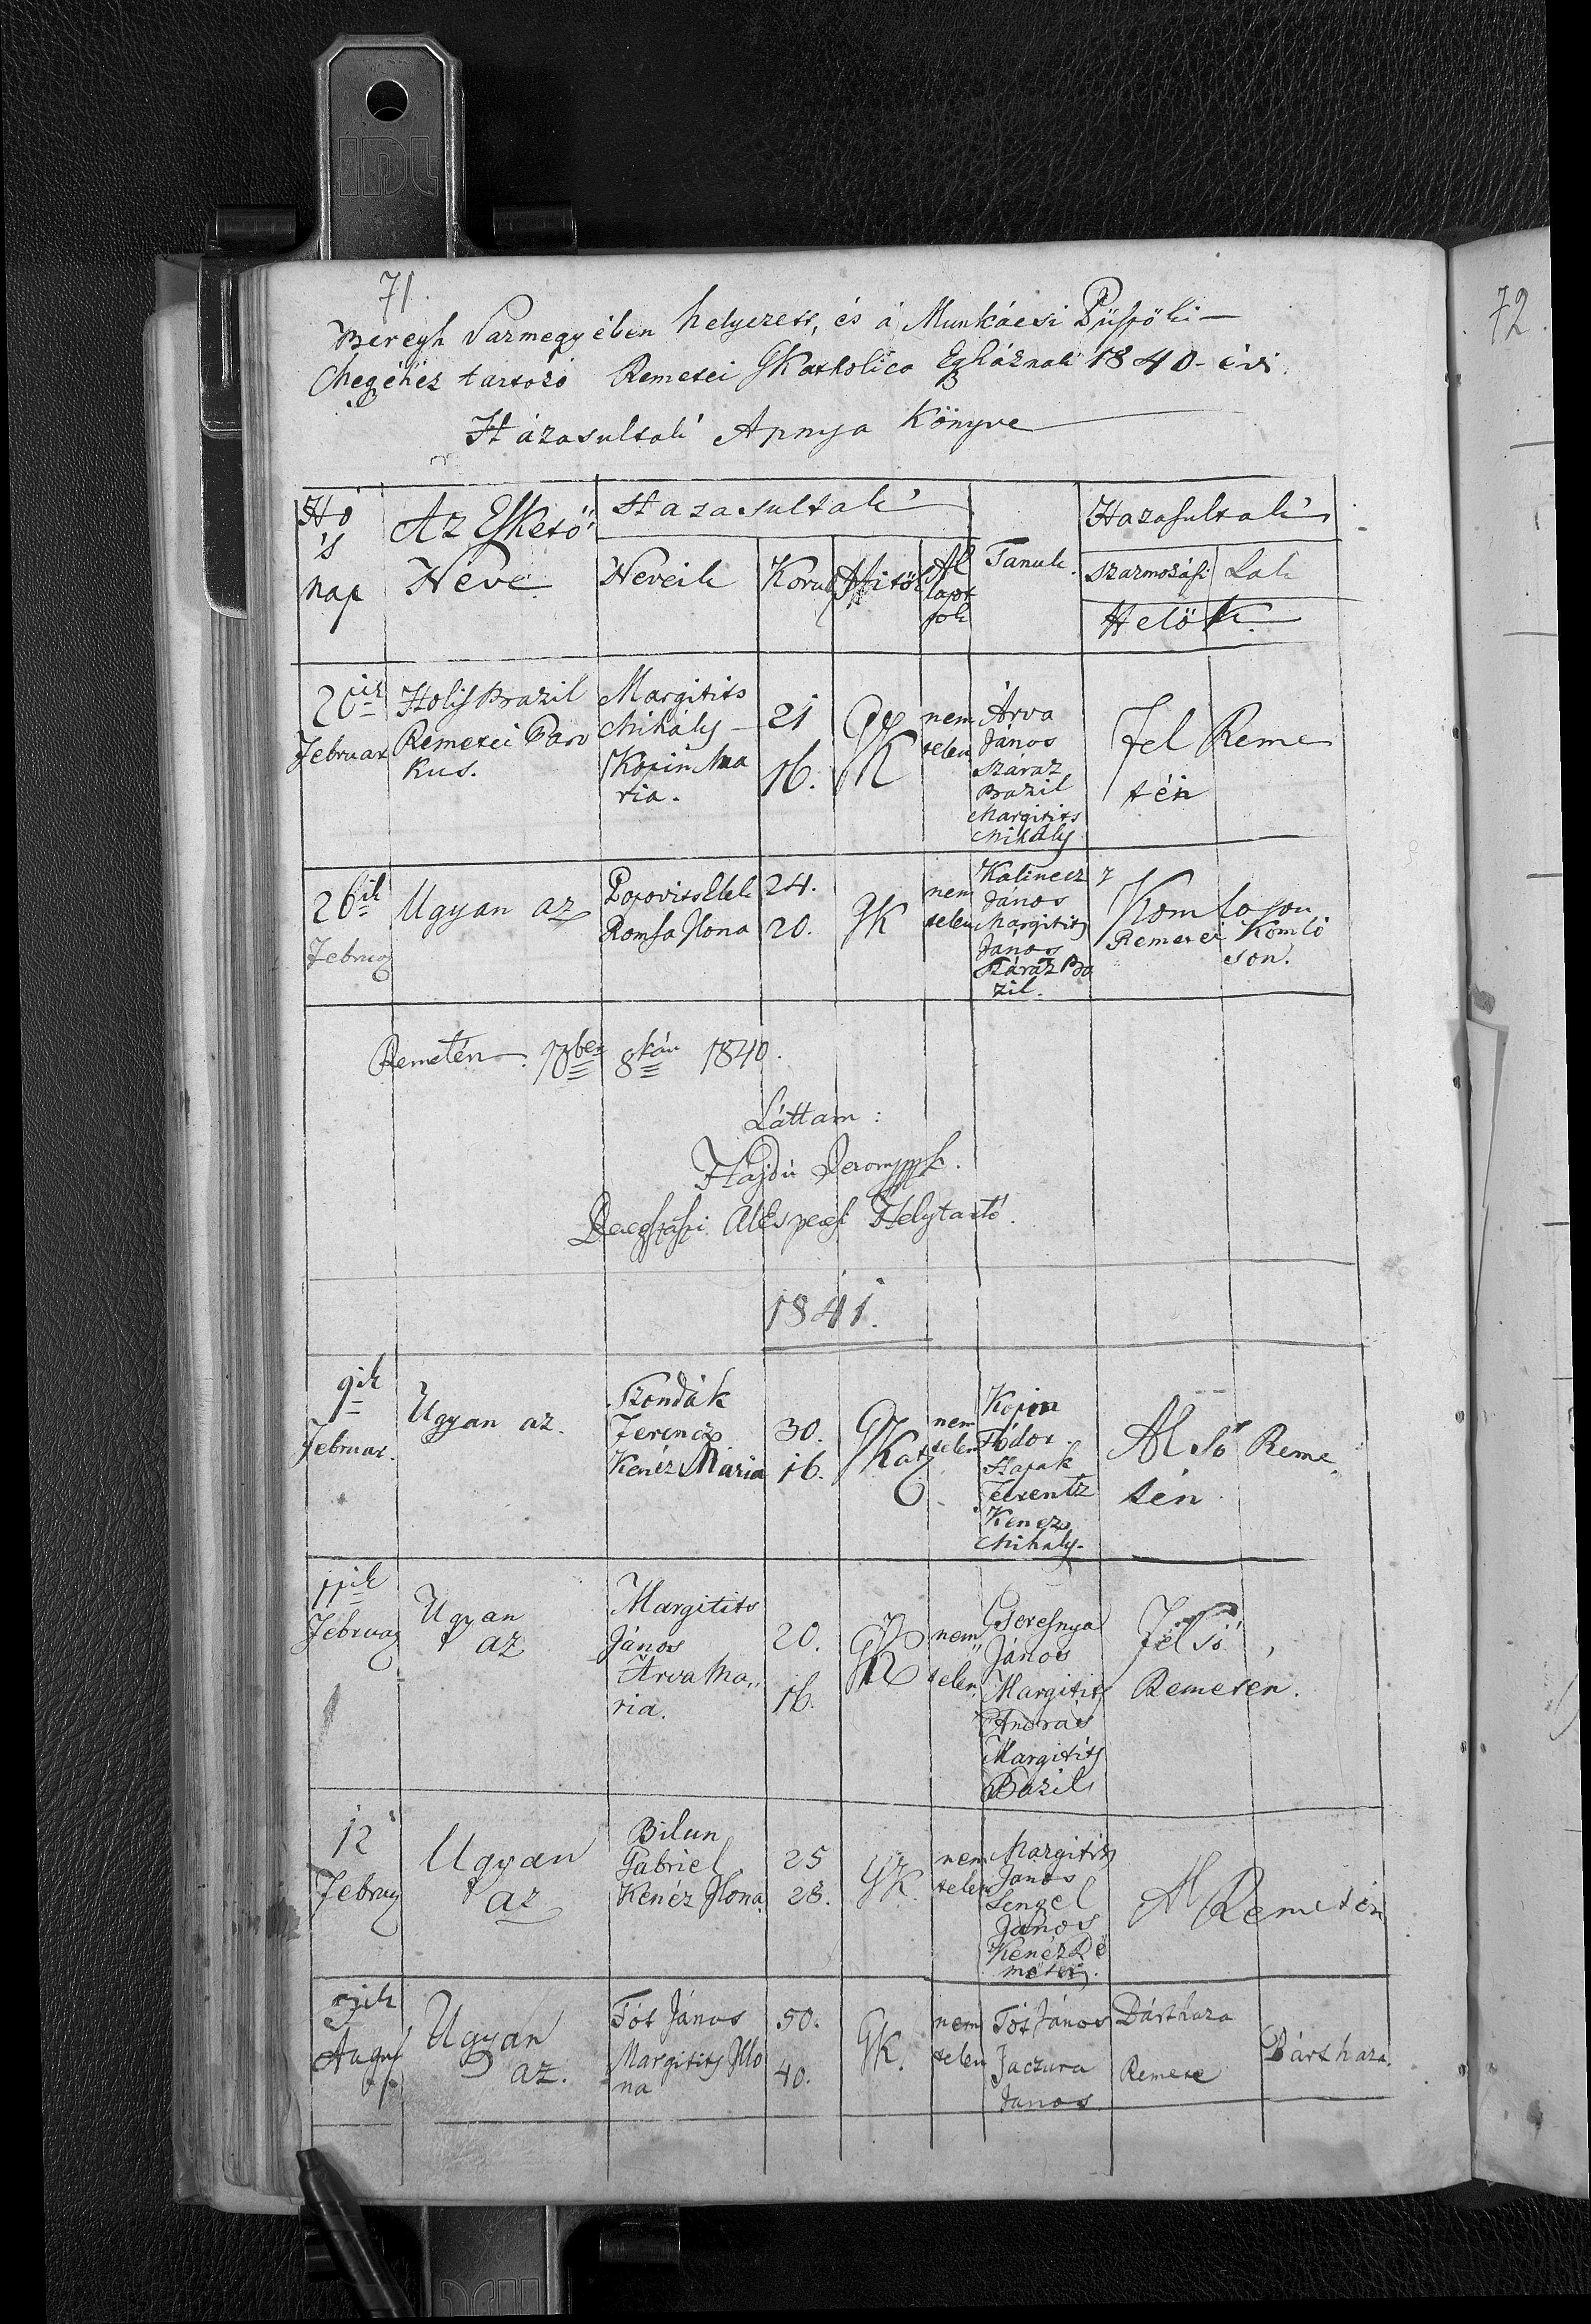 71.
Beregh Varmegyében helyezett, és á Munkácsi Püspöki
Megyéhez tartozó Remetei GKatholica Egyháznak 1840-évi
Házasultak Annya Könyve
Hó
's
nap
Az Eskető
Neve
Hazasultak
Neveik
Koruk
Hitök
Ál
lapot
jok
Tanuk.
Hazasultak
Szarmozási Lak
Helök.
2ik
Februar
Holis Bazil
Remetei Paro
kus.
Margitits
Mihály
Kopin Ma
ria.
21
16.
GK
nem
telen
Árva
János
Szaraz
Bazil
Margitits
Mihály
Fel Reme
tén
26ik
Februar
Ugyan az
Popovits Elek
Romsa Ilona
24.
20.
GK
nem
telen
Kalinecz
János
Margitits
János
Száraz Ba
zil.
Komloson
Remetei Komló
son.
Remetén 8kán 1840.
Láttam:
Hajdú
Helytartó.
1841.
9ik
Februar.
Ugyan az.
Szondák
Ferencz
Kenéz Mária
30.
16.
GKat
nem
telen
Kopin
Fődor
Hapak
Ferentz
Kenez
Mihaly.
Al só Reme
tén
11ik
Februar
Ugyan
az
Margitits
János
Árva Ma„
ria.
20.
16.
GK
nem„
telen
Cseresnya
János
Margitits
András
Margitits
Bazil
Felső
Remetén.
12
Februar
Ugyan
az
Bilun
Gabriel
Kenéz Ilona.
25
28.
GK.
nem
telen
Margitits
János
Lengel
János
Kenéz Dö
möter.
Al Remetén
Augus
Ugyan
az.
Tót János
Margitits Illo
na
50.
40.
GK.
nem
telen
Tót János
Jaczura
Janos
Bárthaza
Remete
Bárthaza.
72.